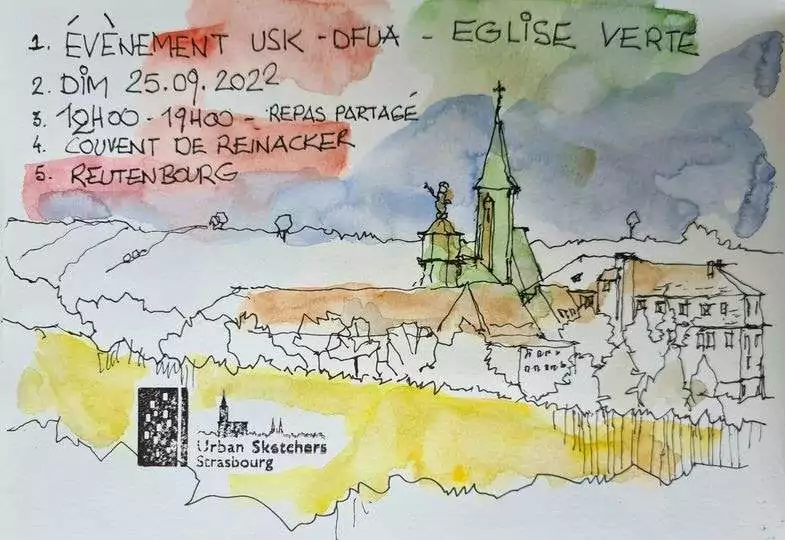 1. ÉVÈNEMENT USK - DFUA - EGLISE VERTE
2. DIM 25.09.2022
3. 12H00 - 19H00 - REPAS PARTAGÉ
4. COUVENT DE REINACKER
5. REUTENBOURG
Urban Sketchers
Strasbourg